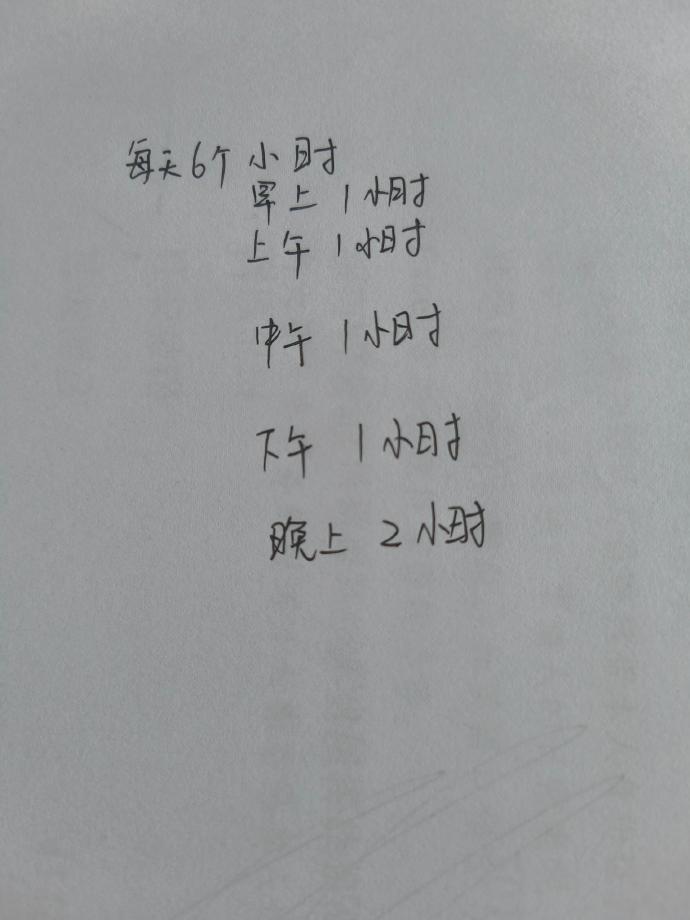 每天6个小时
早上 1小时
上午 1小时
中午 1小时
下午 1小时
晚上 2小时